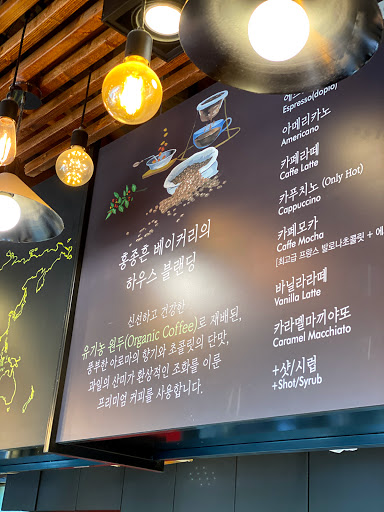 홍종흔 베이커리의
하우스 블렌딩
신선하고 건강한
유기농 원두(Organic Coffee)로 재배된,
풍부한 아로마의 향기와 초콜릿의 단맛,
과일의 산미가 환상적인 조화를 이룬
프리미엄 커피를 사용합니다.
Espresso(dopio)
아메리카노
Americano
카페라떼
Caffe Latte
카푸치노 (Only Hot)
Cappuccino
카페모카
Caffe Mocha
[최고급 프랑스 발로나초콜릿 + 에
바닐라라떼
Vanilla Latte
카라멜마끼야또
Caramel Macchiato
+샷/시럽
+Shot/Syrub